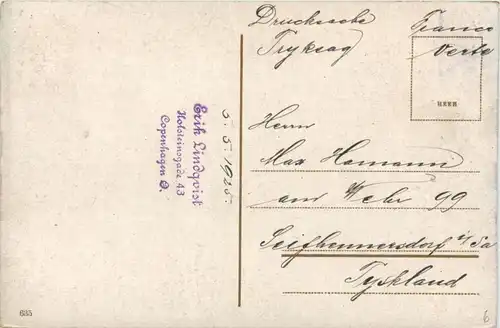 Drucksache
Tryksag
Franco
Verte
HEER
Erik Lindqvist
Holsteinsgade 43
Copenhagen Ø.
5. 5. 1925.
Herrn
Max Hamann
am Wehr 99
Seifhennersdorf i/Sa
Tyskland
635
6